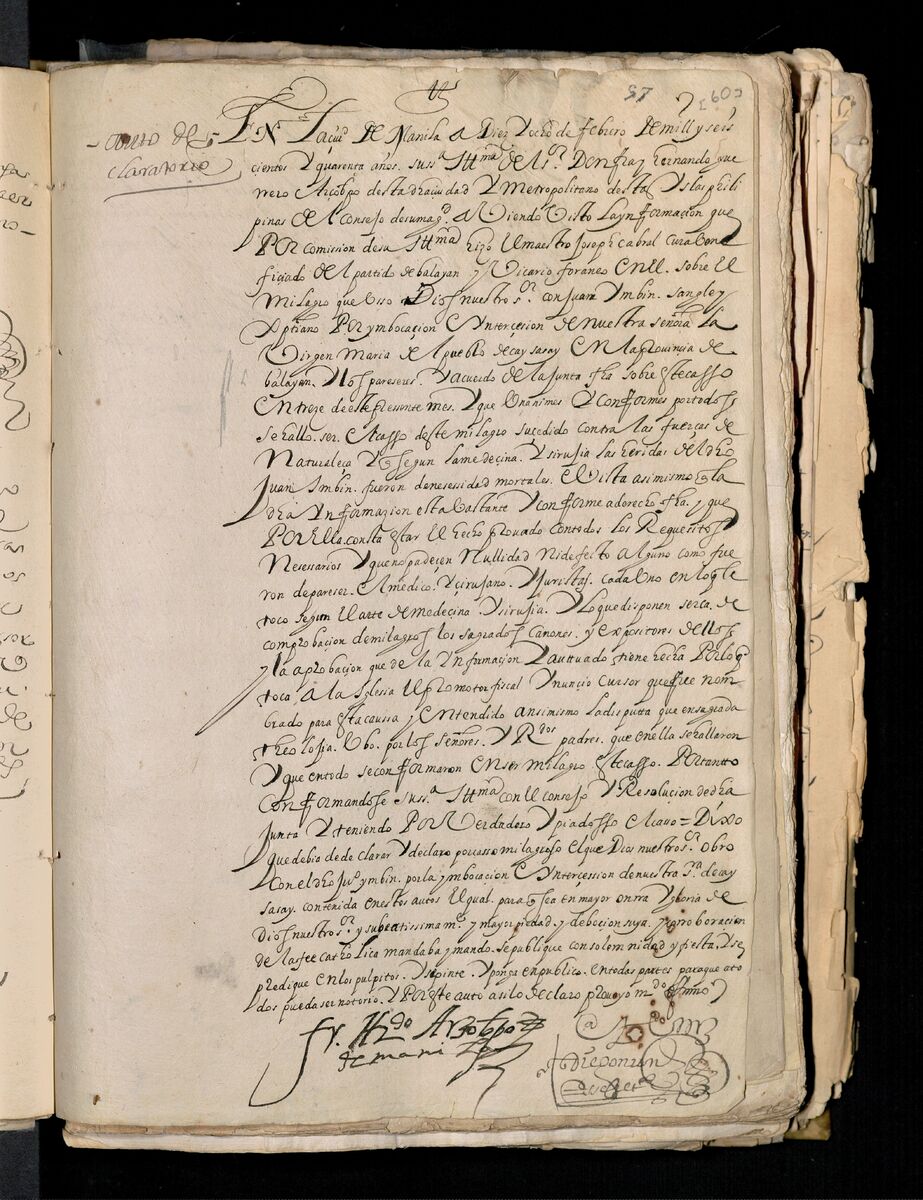 57
Autto de
claratorio
En la ciud de Manila a Diez y ocho de febrero de mill y seis
cientos y quarenta años. su sa Illma del sr. Don fray hernando gue
rrero Arçobpo desta dha ciudad y metropolitano destas yslas phili
pinas del consejo de su magd. aviendo visto la ynformaçion que
Por comission de su sa Illma hizo el maestro Joseph cabral cura bene
ficiado del partido de balayan y Vicario foraneo en el. sobre el
milagro que hisso Dios nuestro sr. con Juan ymbin. sangley
xptiano Por ymbocaçion e yntercesion de nuestra señora la
Virgen maria del pueblo de caysasay en la provincia de
balayan. y los pareseres. y acuerdo de la junta fha sobre este casso
en treze de este pressente mes. y que unanimes y conformes por todos
se hallo. ser el casso deste milagro suçedido contra las fuerças de
naturaleça y q segun la medeçina. y sirusia las heridas del dho
Juan Imbin. fueron de nesessidad mortales. e vista asimismo q la
dha ynformazion esta bastante y conforme a derecho fha. y que
Por ella consta estar el hecho provado con todos los Requesitos
nesessarios y que no padeçen nullidad ni defecto alguno como fue
ron de pareser. el medico. y çirujano. y juristas. cada uno en lo q le
toco segun el arte de medeçina y sirusia. y lo que disponen serca. de
comprobaçion de milagros los sagrados canones. y expositores dellos
y la aprobaçion que de la ynformaçion y auttuado tiene hecha Por lo q
toca a la Iglesia el promotor fiscal y nunçio cursor que fue nom
brado para esta caussa y entendido ansimismo la disputa que en sagrada
theolosia. ubo. por los señores. y Rdos padres. que en ella se hallaron
y que en todo se conformaron en ser milagro este casso. Por tantto
conformandose su sa Illma con el consejo y Resoluçion de dha
junta y teniendo Por Verdadero y piadosso el caso = Dixo
que debia de declarar y declaro por casso milagroso el que Dios nuestro sr. obro
con el dho juo ymbin. por la ymbocaçion e yntercession de nuestra sa. de cay
sasay. contenida en estos autos el qual. para q sea en mayor onrra y gloria de
Dios nuestro sr. y su beatissima me. y mayor piedad. y deboçion suya. y corroboraçion
de la fee catholica mandaba y mando. se publique con solemnidad y fiesta. y se
predique en los pulpitos. y se pinte. y ponga en publico. en todas partes para que a to
dos pueda ser notorio. y Por este auto asi lo declaro proveyo mdo y firmo
fr. Hrdo Arzobpo
de manila